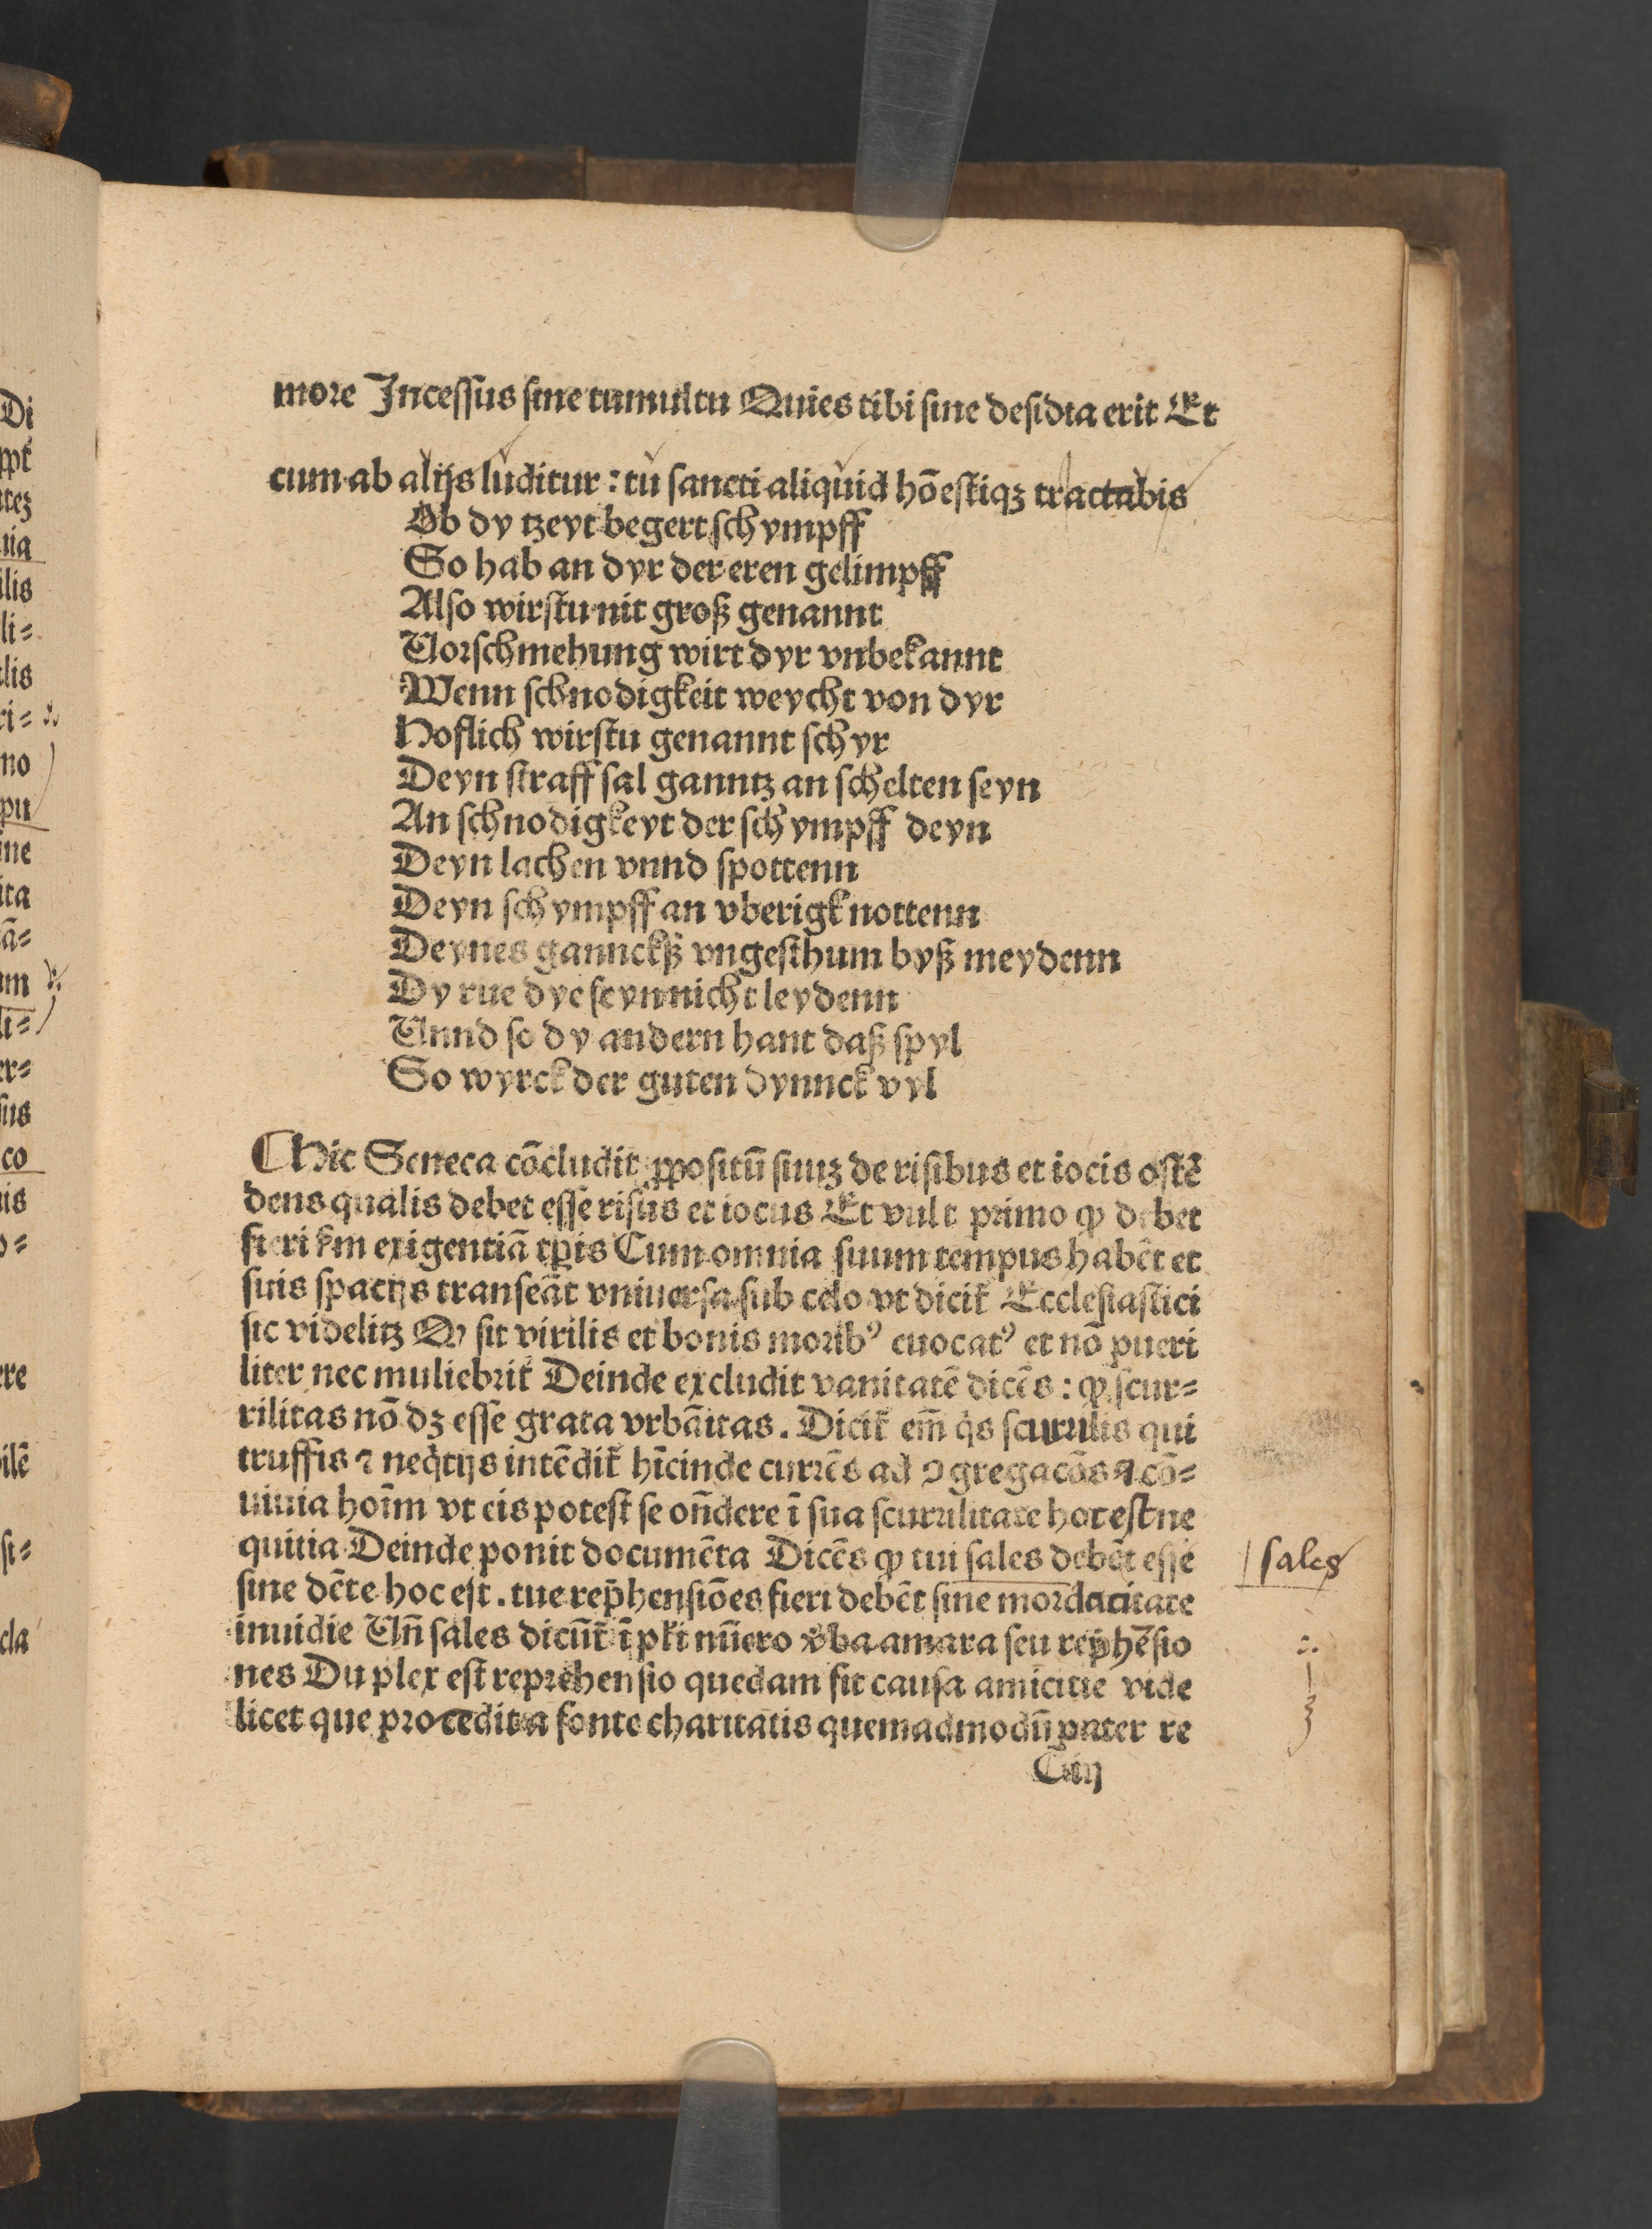 more Jncessus sine tumultu Quies tibi sine desidia erit Et
cum ab alijs luditur : tu sancti aliquid hōestiqꝫ tractabis
Ob dy tzeyt begert schympff
So hab an dyr der eren gelimpff
Also wirstu nit groß genannt
Vorschmehung wirt dyr vnbekannt
Wenn schnodigkeit weycht von dyr
Hoflich wirstu genannt schyr
Deyn straff sal ganntz an schelten seyn
An schnodigkeyt der schympff deyn
Deyn lachen vnnd spottenn
Deyn schympff an vberigk nottenn
Deynes gannckß vngesthum byß meydenn
Dy rue dye seyn nicht leydenn
Vnnd so dy andern hant daß spyl
So wyrck der guten dynnck vyl
Hic Seneca cōcludit ꝓpositū suuꝫ de risibus et iocis ostē
dens qualis debet esse risus et iocus Et vult primo ꝙ debet
fieri ẜm exigentiā tꝑis Cum omnia suum tempus habēt et
suis spacijs transeāt vniuersa sub celo vt dicit᷑ Ecclesiastici
sic videlitꝫ Ꝙ sit virilis et bonis moribꝰ euocatꝰ et nō pueri
liter nec muliebrit᷑ Deinde excludit vanitatē dicēs : ꝙ scur=
rilitas nō dꝫ esse grata vrbāitas . Dicit᷑ em̄ qͥs scurrilis qui
truffis ⁊ neqͥtijs intēdit᷑ hīcinde currēs ad ꝯgregacōs ⁊ cō=
uiuia hoīm vt eis potest se on̄dere ī sua scurrilitate hoc est ne
quitia Deinde ponit documēta Dicēs ꝙ tui sales debēt esse
sine dēte hoc est . tue rep̄hensiōes fieri debēt sine mordacitate
inuidie Vn̄ sales dicūt᷑ ī pl᷑i nūero v̾ba amara seu rep̄hēsio
nes Duplex est reprehensio quedam fit causa amicitie vide
licet que procedit a fonte charitatis quemadmodū pater re
C iij
sales